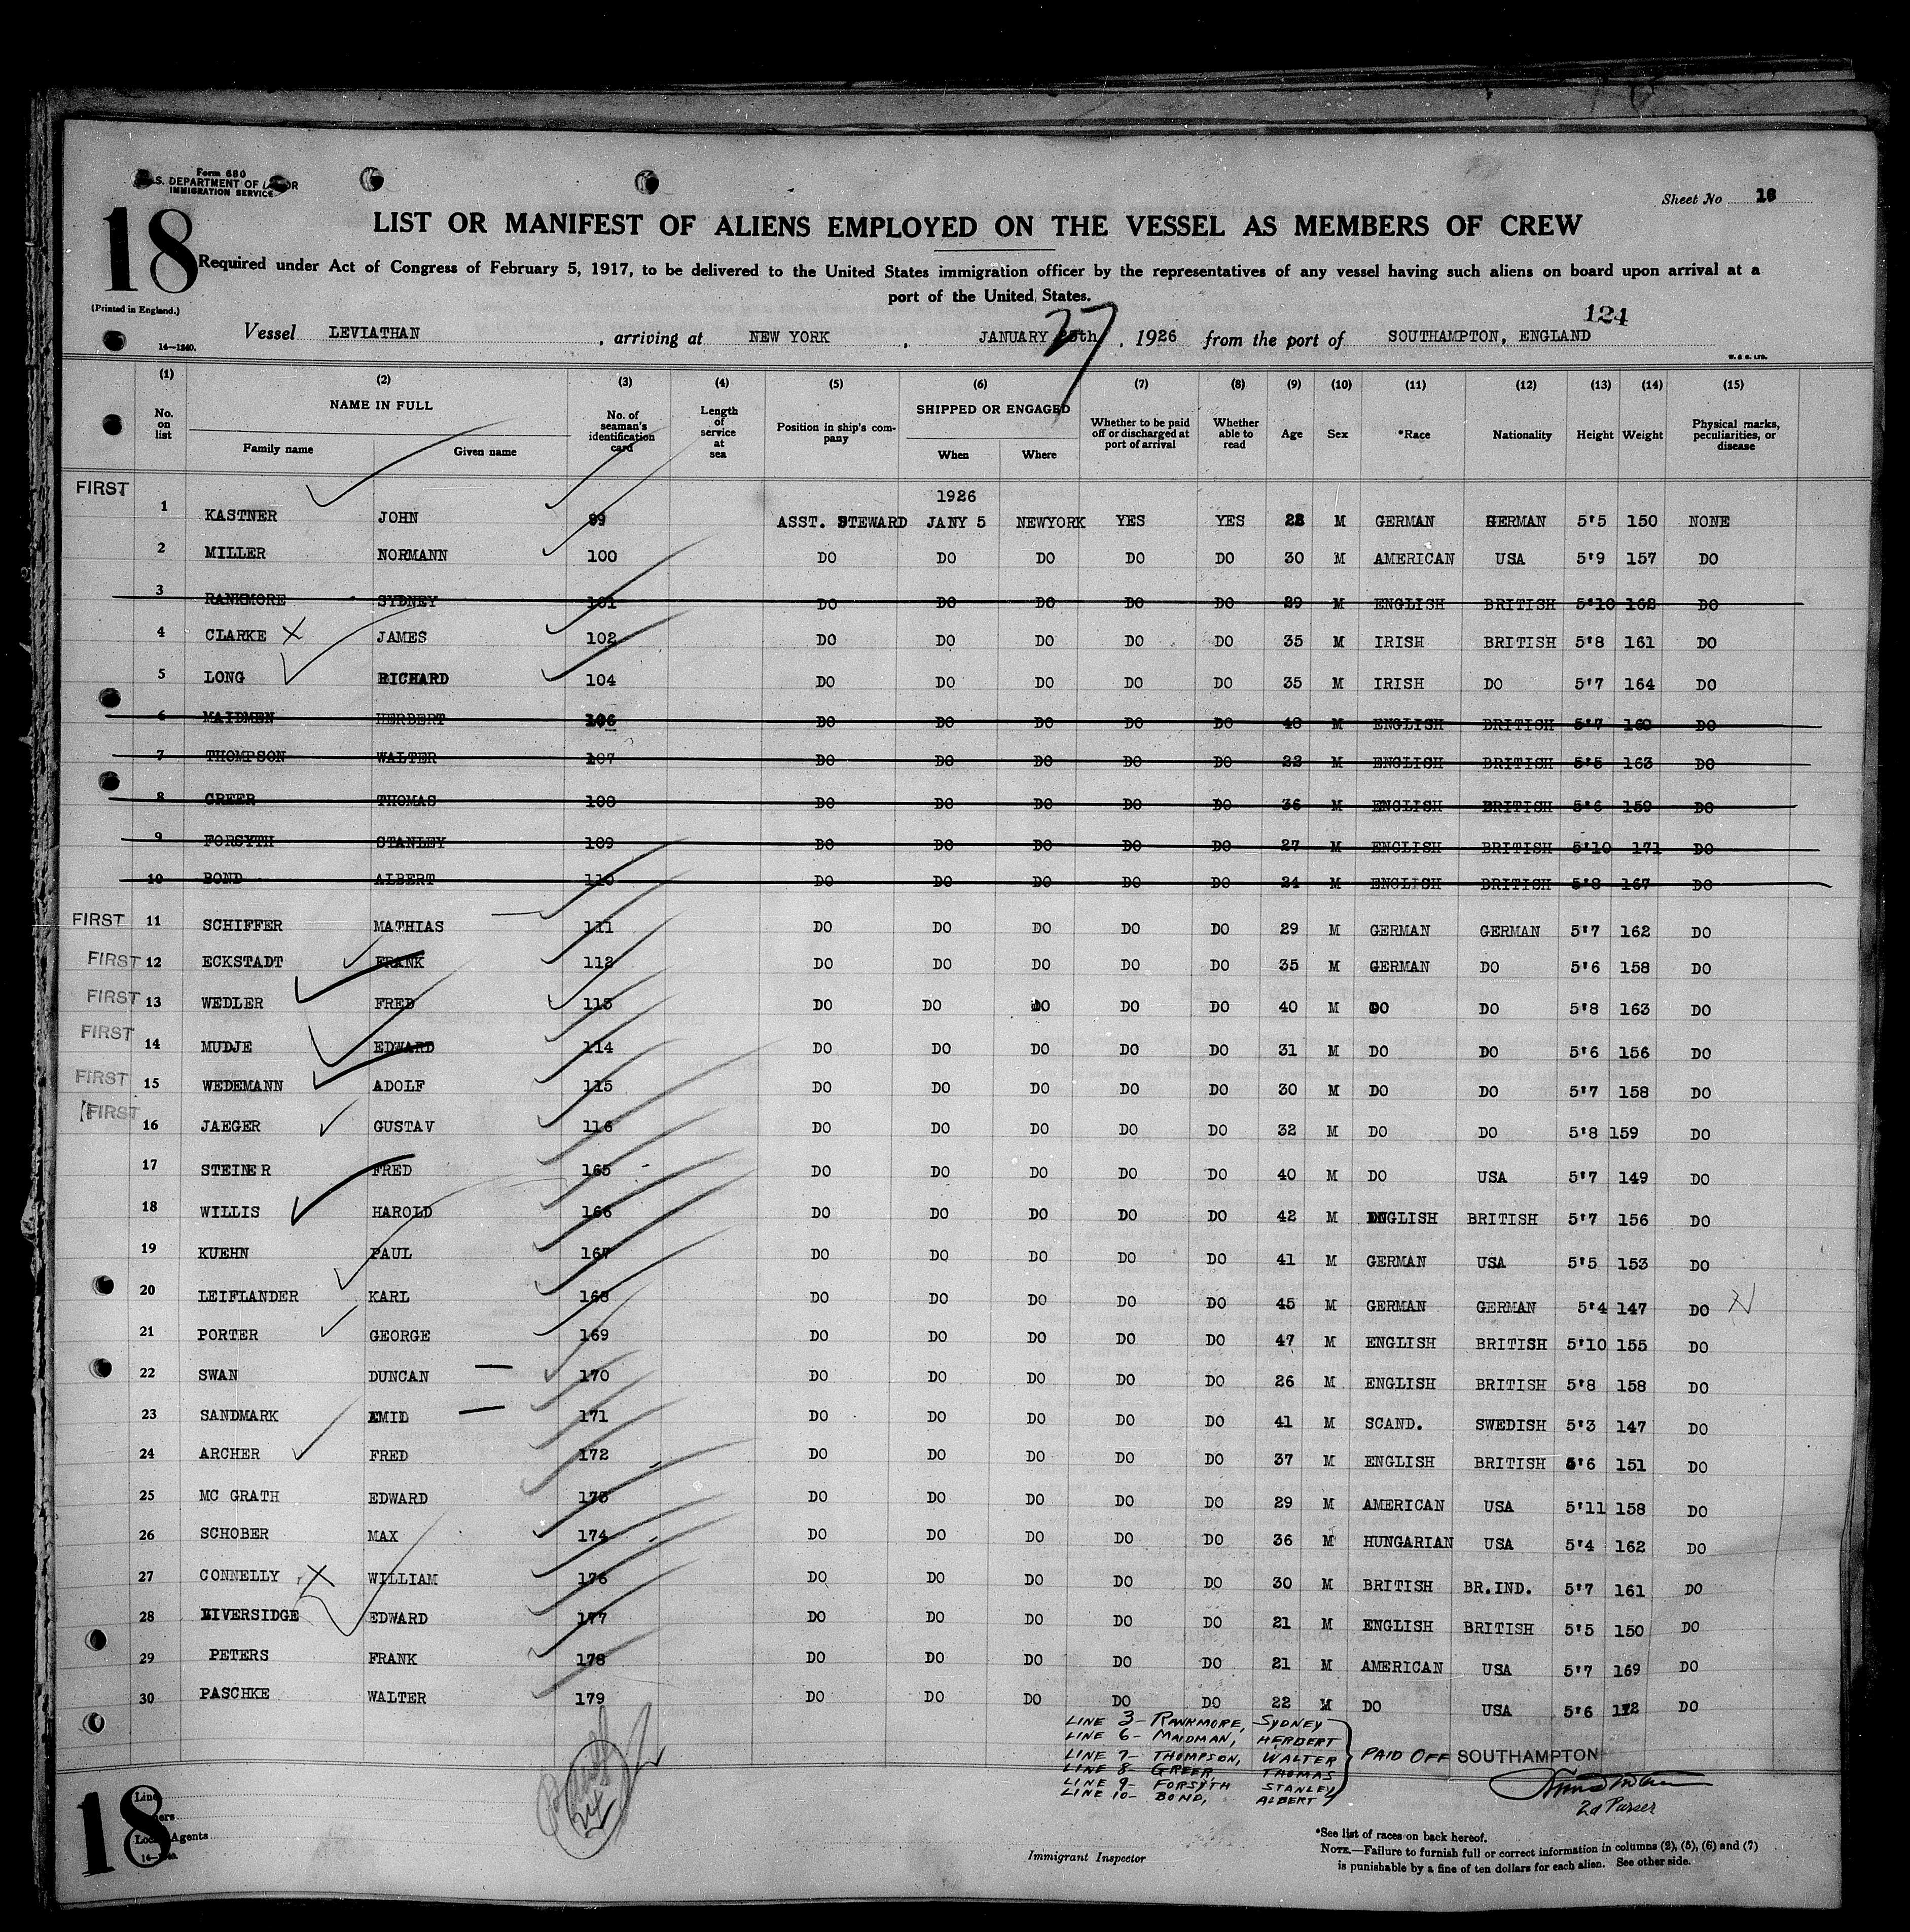 Form 680
U.S. DEPARTMENT OF LABOR
IMMIGRATION SERVICE
18
(Printed in England.)
14—1240.
Sheet No 18
LIST OR MANIFEST OF ALIENS EMPLOYED ON THE VESSEL AS MEMBERS OF CREW
Required under Act of Congress of February 5, 1917, to be delivered to the United States immigration officer by the representatives of any vessel having such aliens on board upon arrival at a
port of the United States.
124
Vessel LEVIATHAN , arriving at NEW YORK , JANUARY 27 , 1926 from the port of SOUTHAMPTON, ENGLAND
W. & S. LTD.
(1) (2) (3) (4) (5) (6) (7) (8) (9) (10) (11) (12) (13) (14) (15)
No. on list NAME IN FULL Family name Given name No. of seaman's identification card Length of service at sea Position in ship's company SHIPPED OR ENGAGED When Where Whether to be paid off or discharged at port of arrival Whether able to read Age Sex *Race Nationality Height Weight Physical marks, peculiarities, or disease
1926
FIRST 1 KASTNER JOHN 99 ASST. STEWARD JANY 5 NEWYORK YES YES 28 M GERMAN GERMAN 5'5 150 NONE
2 MILLER NORMANN 100 DO DO DO DO DO 30 M AMERICAN USA 5'9 157 DO
3 RANKMORE SYDNEY 101 DO DO DO DO DO 29 M ENGLISH BRITISH 5'10 162 DO
4 CLARKE X JAMES 102 DO DO DO DO DO 35 M IRISH BRITISH 5'8 161 DO
5 LONG RICHARD 104 DO DO DO DO DO 35 M IRISH DO 5'7 164 DO
6 MAIDMEN HERBERT 106 DO DO DO DO DO 40 M ENGLISH BRITISH 5'7 160 DO
7 THOMPSON WALTER 107 DO DO DO DO DO 22 M ENGLISH BRITISH 5'5 163 DO
8 GREER THOMAS 108 DO DO DO DO DO 36 M ENGLISH BRITISH 5'6 159 DO
9 FORSYTH STANLEY 109 DO DO DO DO DO 27 M ENGLISH BRITISH 5'10 171 DO
10 BOND ALBERT 110 DO DO DO DO DO 24 M ENGLISH BRITISH 5'8 167 DO
FIRST 11 SCHIFFER MATHIAS 111 DO DO DO DO DO 29 M GERMAN GERMAN 5'7 162 DO
FIRST 12 ECKSTADT FRANK 112 DO DO DO DO DO 35 M GERMAN DO 5'6 158 DO
FIRST 13 WEDLER FRED 113 DO DO DO DO DO 40 M DO DO 5'8 163 DO
FIRST 14 MUDJE EDWARD 114 DO DO DO DO DO 31 M DO DO 5'6 156 DO
FIRST 15 WEDEMANN ADOLF 115 DO DO DO DO DO 30 M DO DO 5'7 158 DO
FIRST 16 JAEGER GUSTAV 116 DO DO DO DO DO 32 M DO DO 5'8 159 DO
17 STEINER FRED 165 DO DO DO DO DO 40 M DO USA 5'7 149 DO
18 WILLIS HAROLD 166 DO DO DO DO DO 42 M ENGLISH BRITISH 5'7 156 DO
19 KUEHN PAUL 167 DO DO DO DO DO 41 M GERMAN USA 5'5 153 DO
20 LEIFLANDER KARL 168 DO DO DO DO DO 45 M GERMAN GERMAN 5'4 147 DO
21 PORTER GEORGE 169 DO DO DO DO DO 47 M ENGLISH BRITISH 5'10 155 DO
22 SWAN DUNCAN 170 DO DO DO DO DO 26 M ENGLISH BRITISH 5'8 158 DO
23 SANDMARK EMIL 171 DO DO DO DO DO 41 M SCAND. SWEDISH 5'3 147 DO
24 ARCHER FRED 172 DO DO DO DO DO 37 M ENGLISH BRITISH 5'6 151 DO
25 MC GRATH EDWARD 173 DO DO DO DO DO 29 M AMERICAN USA 5'11 158 DO
26 SCHOBER MAX 174 DO DO DO DO DO 36 M HUNGARIAN USA 5'4 162 DO
27 CONNELLY X WILLIAM 176 DO DO DO DO DO 30 M BRITISH BR.IND. 5'7 161 DO
28 LIVERSIDGE EDWARD 177 DO DO DO DO DO 21 M ENGLISH BRITISH 5'5 150 DO
29 PETERS FRANK 178 DO DO DO DO DO 21 M AMERICAN USA 5'7 169 DO
30 PASCHKE WALTER 179 DO DO DO DO DO 22 M DO USA 5'6 172 DO
LINE 3— RANKMORE, SYDNEY
LINE 6— MAIDMAN, HERBERT
LINE 7— THOMPSON, WALTER
LINE 8— GREER, THOMAS
LINE 9— FORSYTH STANLEY
LINE 10— BOND, ALBERT
PAID OFF SOUTHAMPTON
2d Purser
24
18
Line
Local Agents
Immigrant Inspector
*See list of races on back hereof.
NOTE.—Failure to furnish full or correct information in columns (2), (5), (6) and (7)
is punishable by a fine of ten dollars for each alien. See other side.